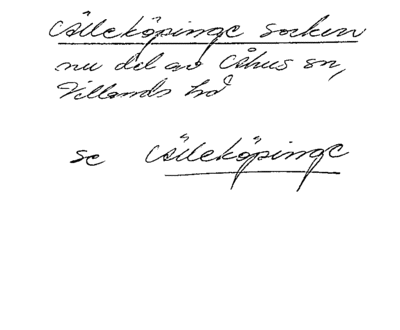 Älleköpinge socken
nu del av Åhus sn,
Villands hd
se Älleköpinge